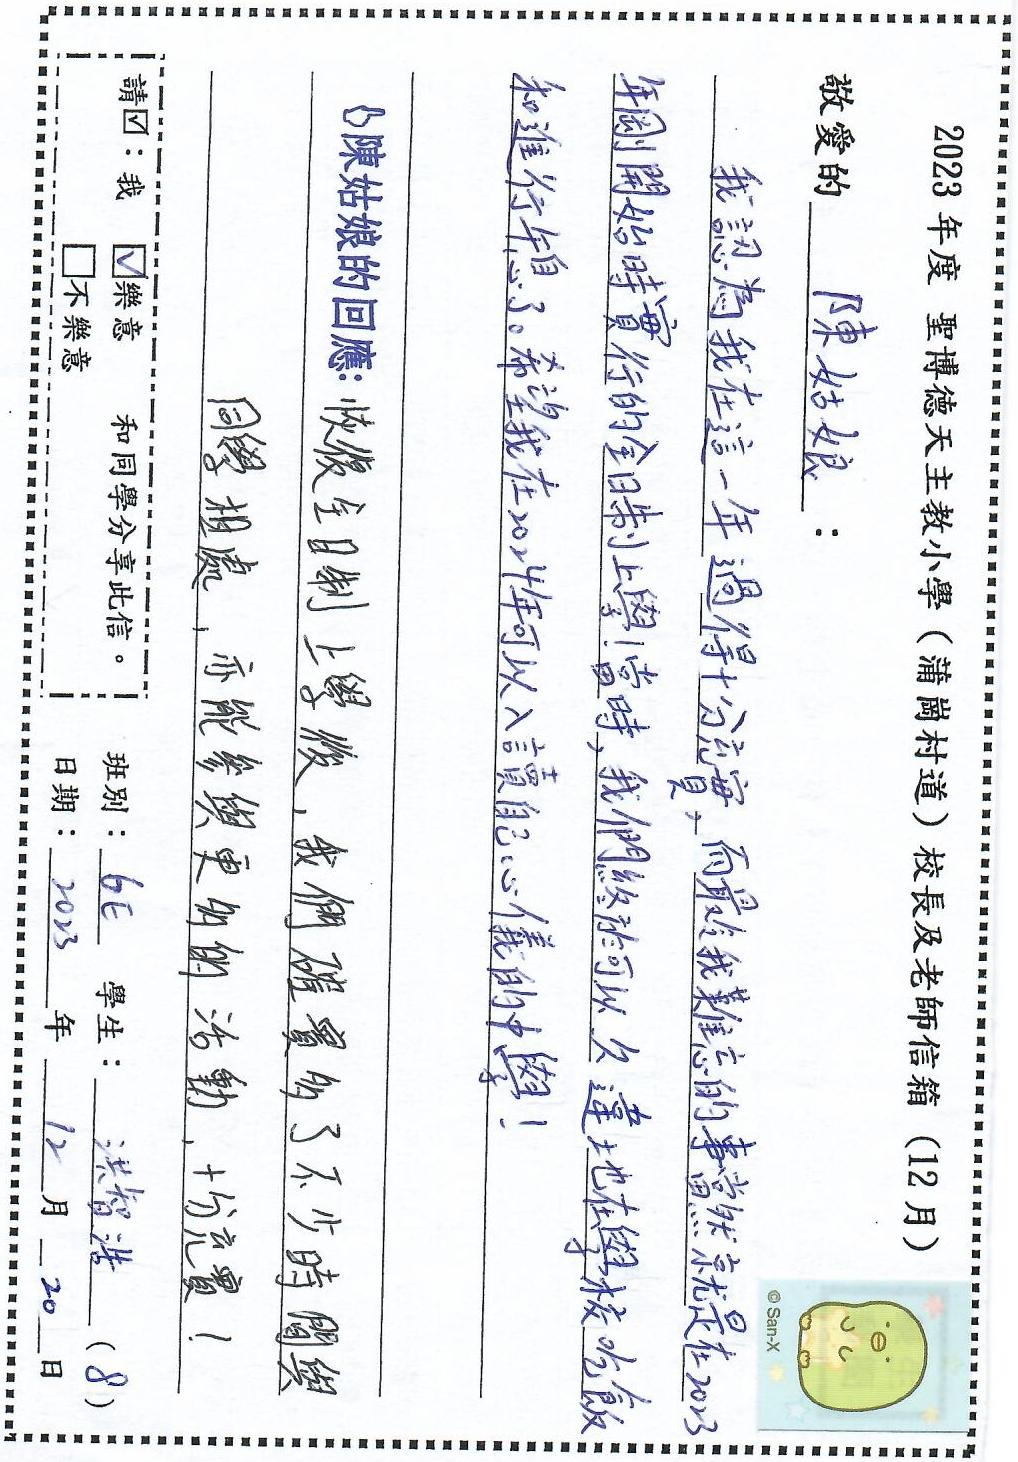 2023 年度 聖博德天主教小學（蒲崗村道）校長及老師信箱（12 月）
敬愛的 陳姑娘 ：
我認為我在這一年過得十分充實，而最令我難忘的事當然就是在2023
年剛開始時實行的全日制上學！當時，我們終於可以久違地在學校吃飯
和進行午息了。希望我在2024年可以入讀自己心儀的中學！
陳姑娘的回應：恢復全日制上學後，我們確實多了不少時間與
同學相處，亦能參與更多的活動，十分充實！
請☑：我 ☑樂意 和同學分享此信。
□不樂意
班別：6E 學生：洪智浩（8）
日期：2023 年 12 月 20 日
© San-X